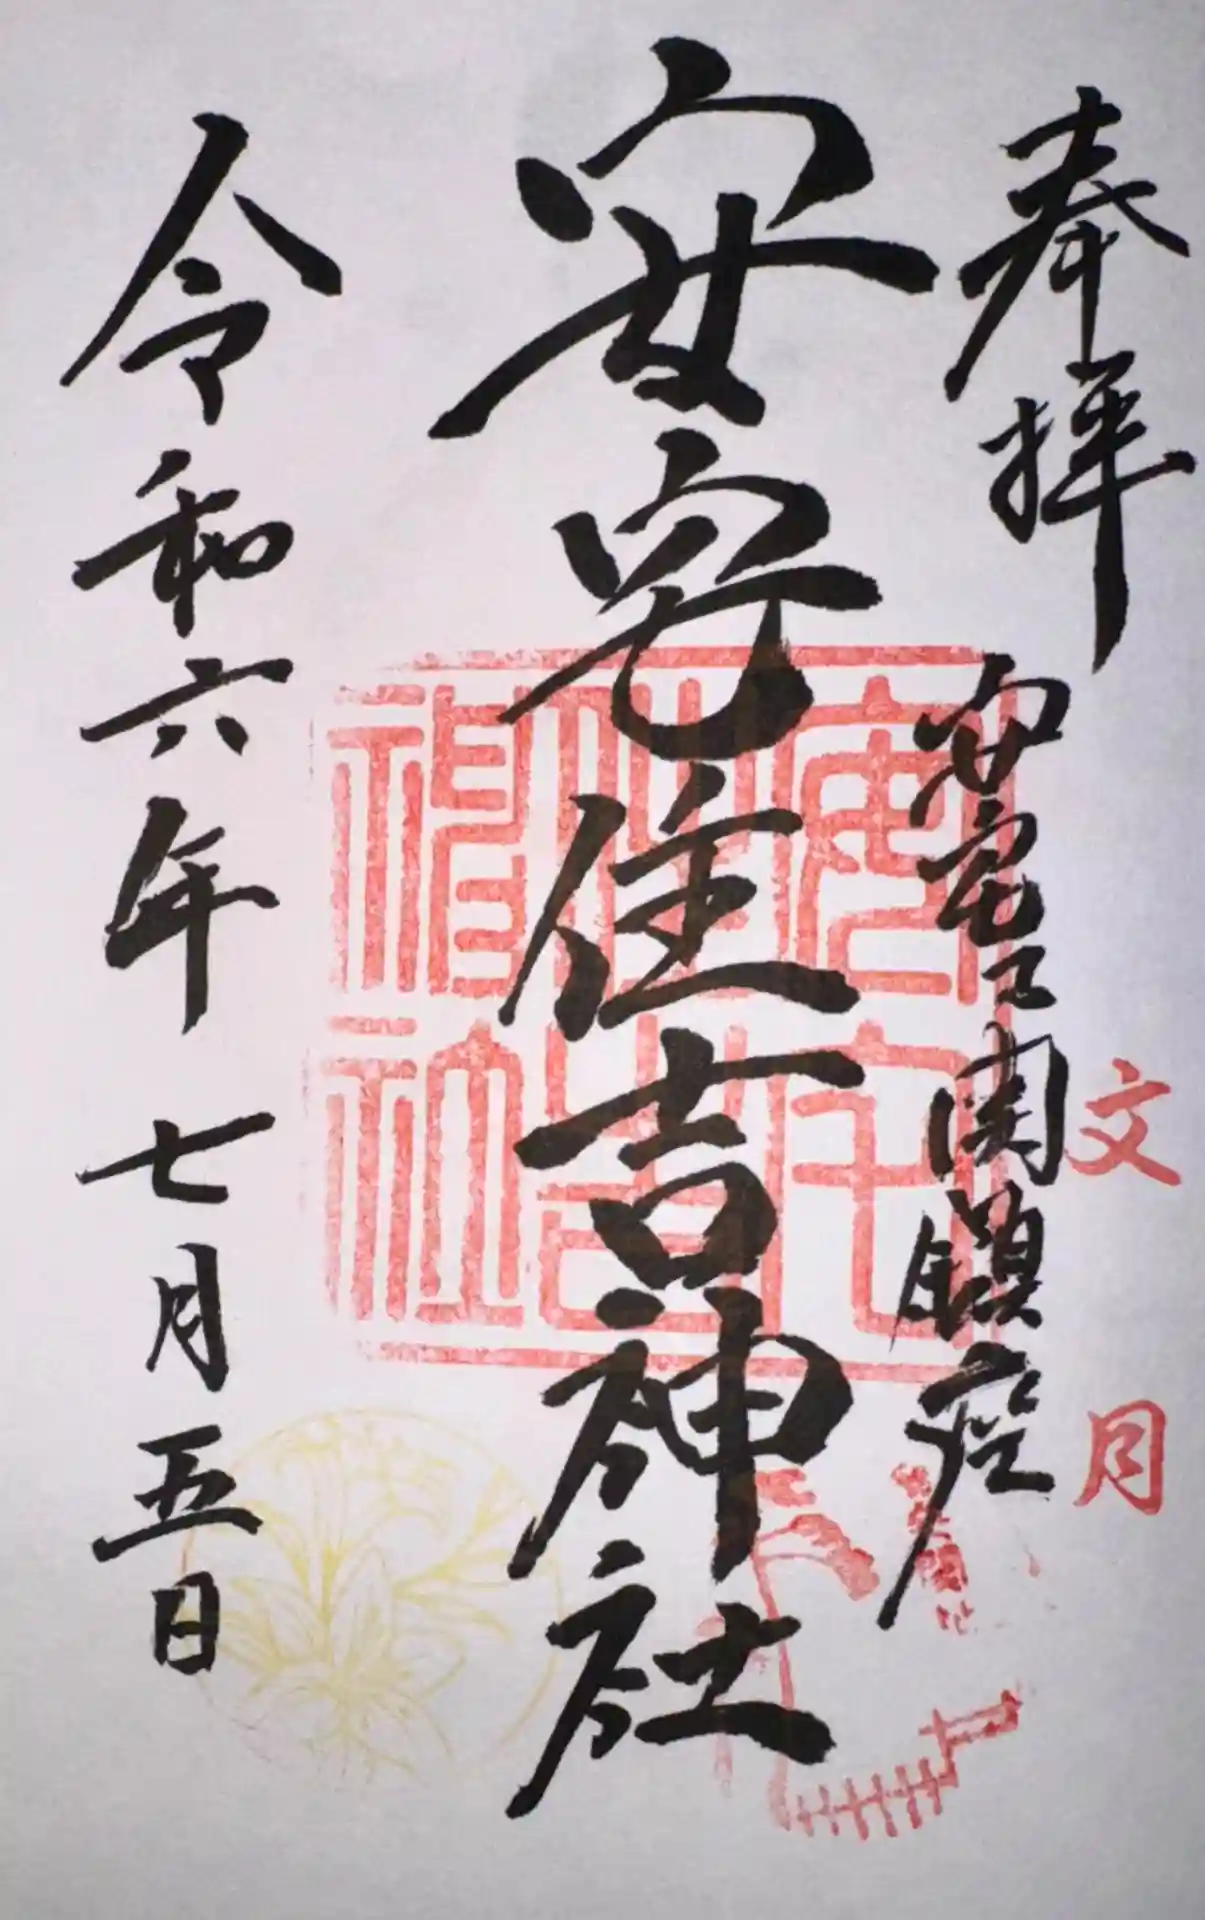 奉拝
安宅之関鎮座
文月
安宅住吉神社
安宅
住吉
神社
令和六年 七月五日